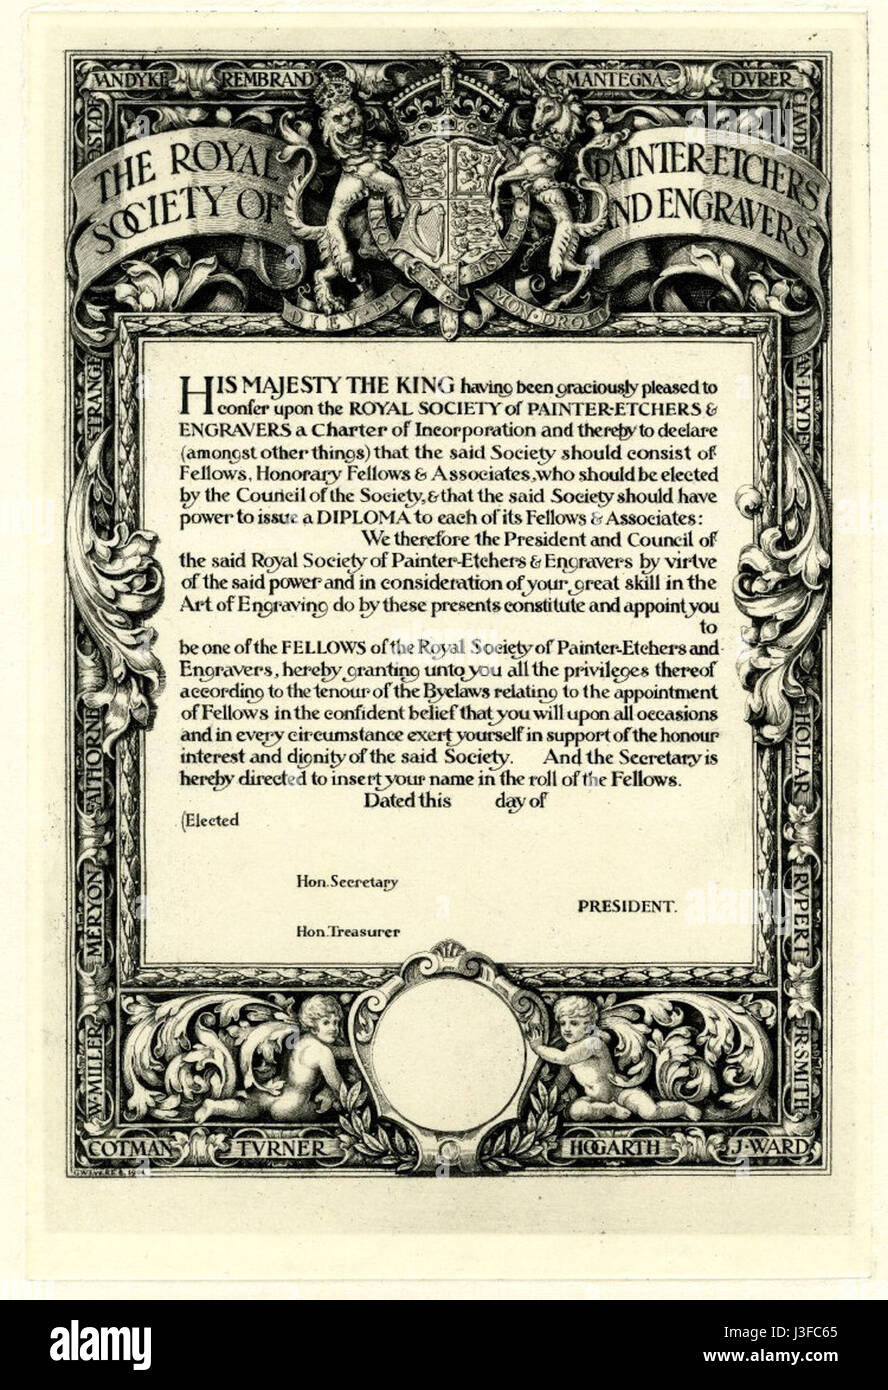 VANDYKE REMBRAND MANTEGNA DVRER
THE ROYAL
SOCIETY OF
PAINTER-ETCHERS
AND ENGRAVERS
DIEV·ET MON·DROIT
STRANGE
FAITHORNE
MERYON
W·MILLER
CLAVDE
VAN·LEYDEN
HOLLAR
RVPERT
J·R·SMITH
HIS MAJESTY THE KING having been graciously pleased to
confer upon the ROYAL SOCIETY of PAINTER-ETCHERS &
ENGRAVERS a Charter of Incorporation and thereby to declare
(amongst other things) that the said Society should consist of
Fellows, Honorary Fellows & Associates, who should be elected
by the Council of the Society, & that the said Society should have
power to issue a DIPLOMA to each of its Fellows & Associates:
We therefore the President and Council of
the said Royal Society of Painter-Etchers & Engravers by virtve
of the said power and in consideration of your great skill in the
Art of Engraving do by these presents constitute and appoint you
to
be one of the FELLOWS of the Royal Society of Painter-Etchers and
Engravers, hereby granting unto you all the privileges thereof
according to the tenour of the Byelaws relating to the appointment
of Fellows in the confident belief that you will upon all occasions
and in every circumstance exert yourself in support of the honour
interest and dignity of the said Society. And the Secretary is
hereby directed to insert your name in the roll of the Fellows.
Dated this day of
(Elected
Hon. Secretary
PRESIDENT.
Hon. Treasurer
COTMAN TVRNER HOGARTH J·WARD
alamy stock photo
J3FC65
www.alamy.com